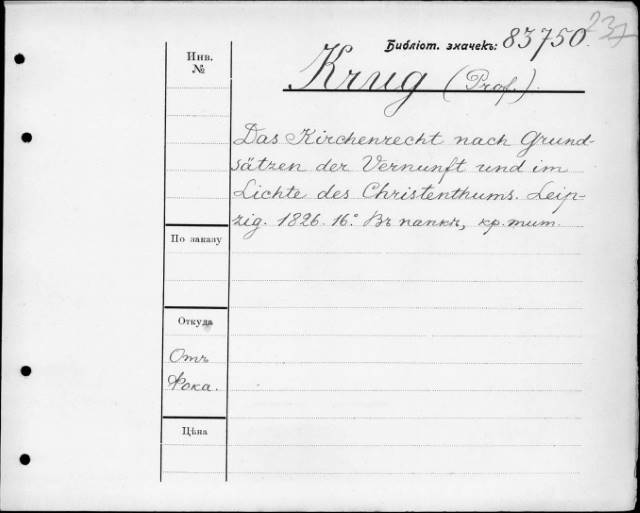 237
Библіот. значекъ: 83750.
Инв. №
Krug (Prof.).
Das Kirchenrecht nach Grund-
sätzen der Vernunft und im
Lichte des Christenthums. Leip-
zig. 1826. 16°. Въ папкѣ, кр. тит.
По заказу
Откуда
Отъ
Фока.
Цѣна